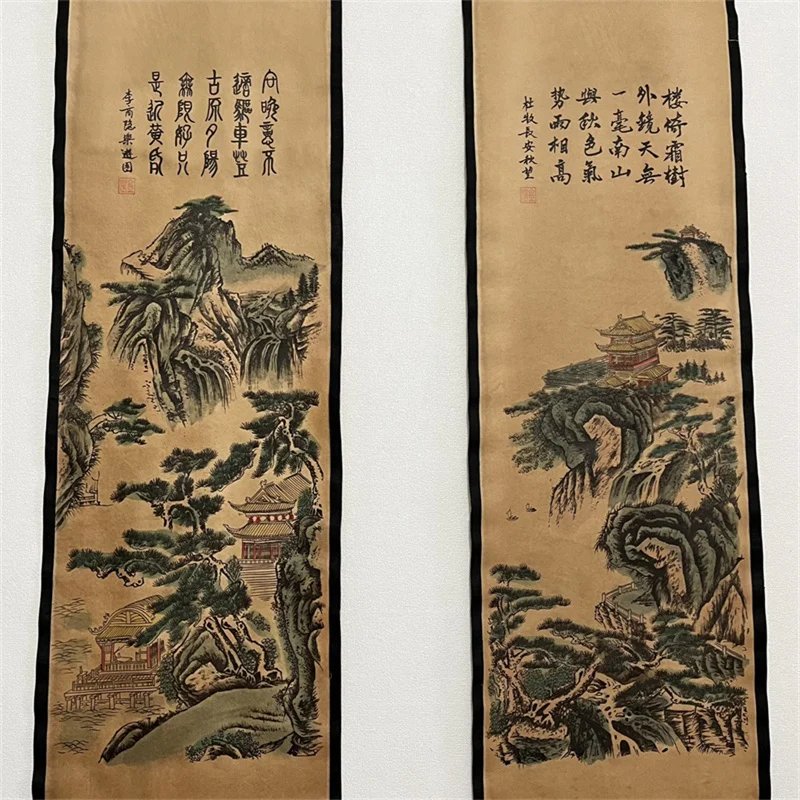 楼倚霜樹
外鏡天無
一毫南山
與秋色氣
势两相高
杜牧長安秋望
向晚意不
適驅車登
古原夕陽
無限好只
是近黄昏
李商隐樂遊园